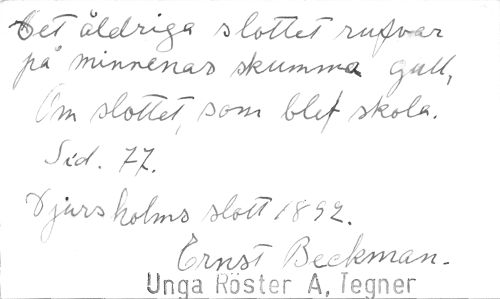 Det åldriga slottet rufvar
på minnenas skumma gull,
Om slottet, som blef skola.
Sid. 77.
Djursholms slott 1892.
Ernst Beckman.
Unga Röster A, Tegner